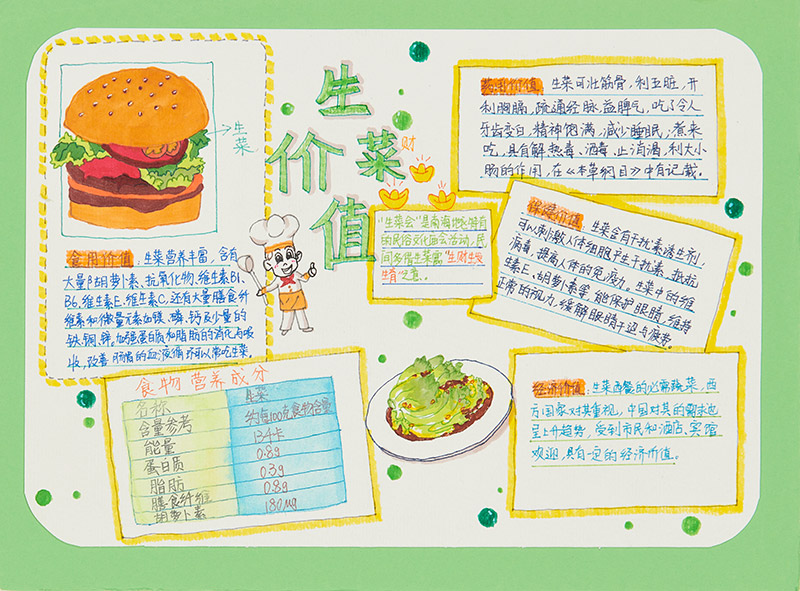 生菜
价值
财
生菜
食用价值：生菜营养丰富，含有
大量β胡萝卜素、抗氧化物、维生素B1、
B6、维生素E、维生素C，还有大量膳食纤
维素和微量元素如镁、磷、钙及少量的
铁、铜、锌，加强蛋白质和脂肪的消化与吸
收，改善肠胃的血液循环可以常吃生菜。
"生菜会"是南海地区特有
的民俗文化庙会活动，民
间多借生菜寓"生财生发
生育"之意。
药用价值： 生菜可壮筋骨，利五脏，开
利胸膈，疏通经脉，益脾气，吃了令人
牙齿变白，精神饱满，减少睡眠；煮来
吃，具有解热毒、酒毒、止消渴，利大小
肠的作用，在《本草纲目》中有记载。
保健价值：生菜含有干扰素诱生剂，
可以刺激人体细胞产生干扰素，抵抗
病毒，提高人体的免疫力。生菜中的维
生素E、胡萝卜素等，能保护眼睛，维持
正常的视力，缓解眼睛干涩与疲劳。
食物营养成分
名称 生菜
含量参考 约每100克食物含量
能量 134卡
蛋白质 0.8g
脂肪 0.3g
膳食纤维 0.8g
胡萝卜素 180μg
经济价值：生菜西餐的必需蔬菜，西
方国家对其重视，中国对其的需求也
呈上升趋势，受到市民和酒店、宾馆
欢迎，具有一定的经济价值。